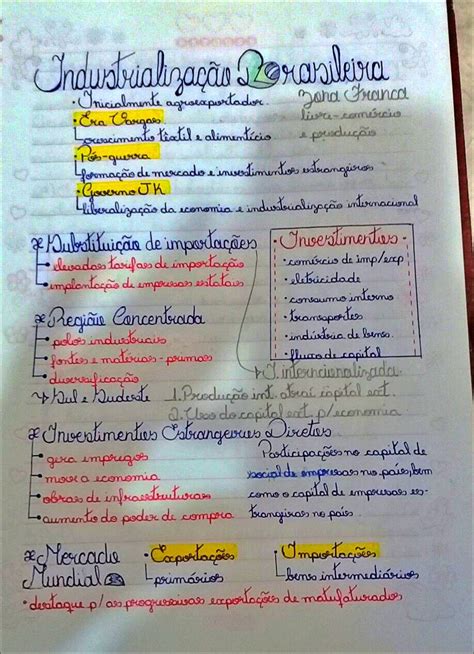 Industrialização Brasileira
• Inicialmente agroexportador.
Zona Franca
• Era Vargas
livre-comércio
crescimento têxtil e alimentício
e produção
• Pós-guerra
formação de mercado e investimentos estrangeiros
• Governo JK
liberalização da economia e industrialização internacional
Substituição de importações
• elevadas tarifas de importação
• implantação de empresas estatais
• Investimentos •
• comércio de imp/exp
• eletricidade
• consumo interno
• transportes
• indústria de bens.
• fluxo de capital
Região Concentrada
• polos industriais
• fontes e matérias-primas
• diversificação
→ Sul e Sudeste
I. internacionalizada.
1. Produção int. atrai capital ext.
2. Uso do capital ext. p/economia
Investimentos Estrangeiros Diretos
• gera empregos
• move a economia
• obras de infraestruturas
• aumento do poder de compra
Participações no capital de
social de empresas no país, bem
como o capital de empresas es-
trangeiras no país.
Mercado
Mundial
• Exportações
primários
• Importações
bens intermediários
• destaque p/as progressivas exportações de matufaturados